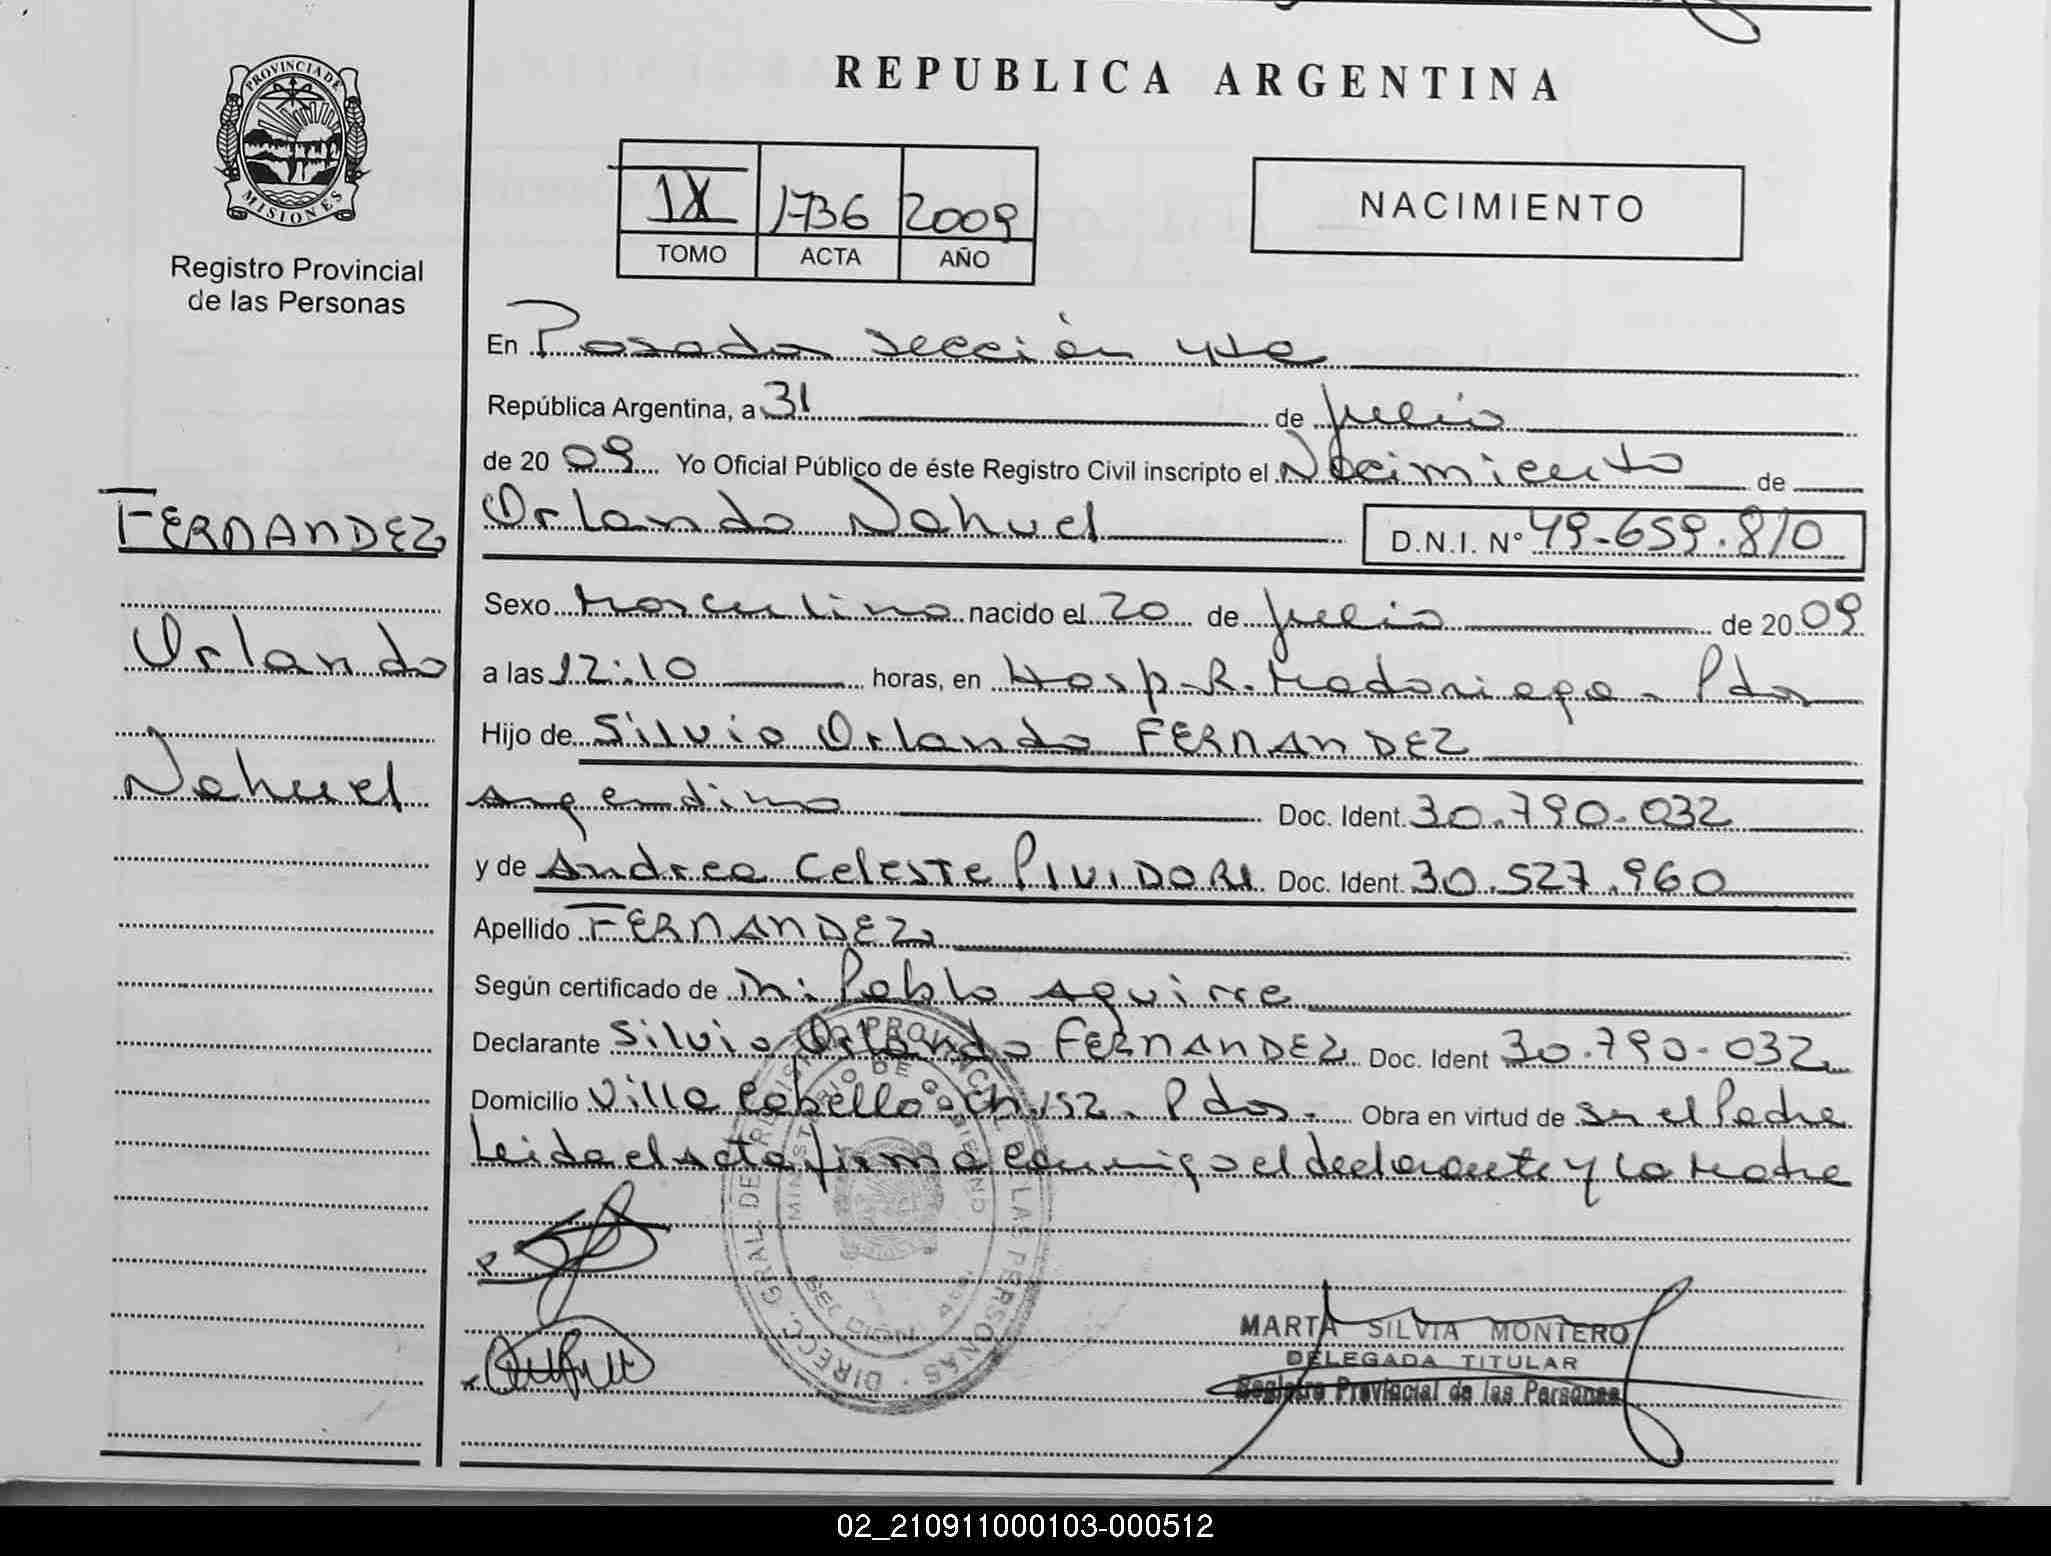 PROVINCIA DE
MISIONES
Registro Provincial
de las Personas
FERNANDEZ
Orlando
Nahuel
REPUBLICA ARGENTINA
IX 1736 2009
TOMO ACTA AÑO
NACIMIENTO
En Posadas sección 4ta
República Argentina, a 31 de julio
de 20 09 Yo Oficial Público de éste Registro Civil inscripto el Nacimiento de
Orlando Nahuel D.N.I. N° 49.659.810
Sexo Masculino nacido el 20 de julio de 20 09
a las 12:10 horas, en Hosp. R. Madariaga - Pdas
Hijo de Silvio Orlando FERNANDEZ
argentino Doc. Ident. 30.790.032
y de Andrea Celeste PIVIDORI Doc. Ident. 30.527.960
Apellido FERNANDEZ
Según certificado de Pablo Aguirre
Declarante Silvio Orlando FERNANDEZ Doc. Ident 30.790.032
Domicilio Villa Cabello - Ch. 152 - Pdas. Obra en virtud de Ser el Padre
Leida el Acta firma conmigo el declarante y la Madre
DIREC. GRAL. DE REGISTRO PROVINCIAL DE LAS PERSONAS
MINISTERIO DE GOBIERNO
SECCION 4ta
MARTA SILVIA MONTERO
DELEGADA TITULAR
Registro Provincial de las Personas
02_210911000103-000512